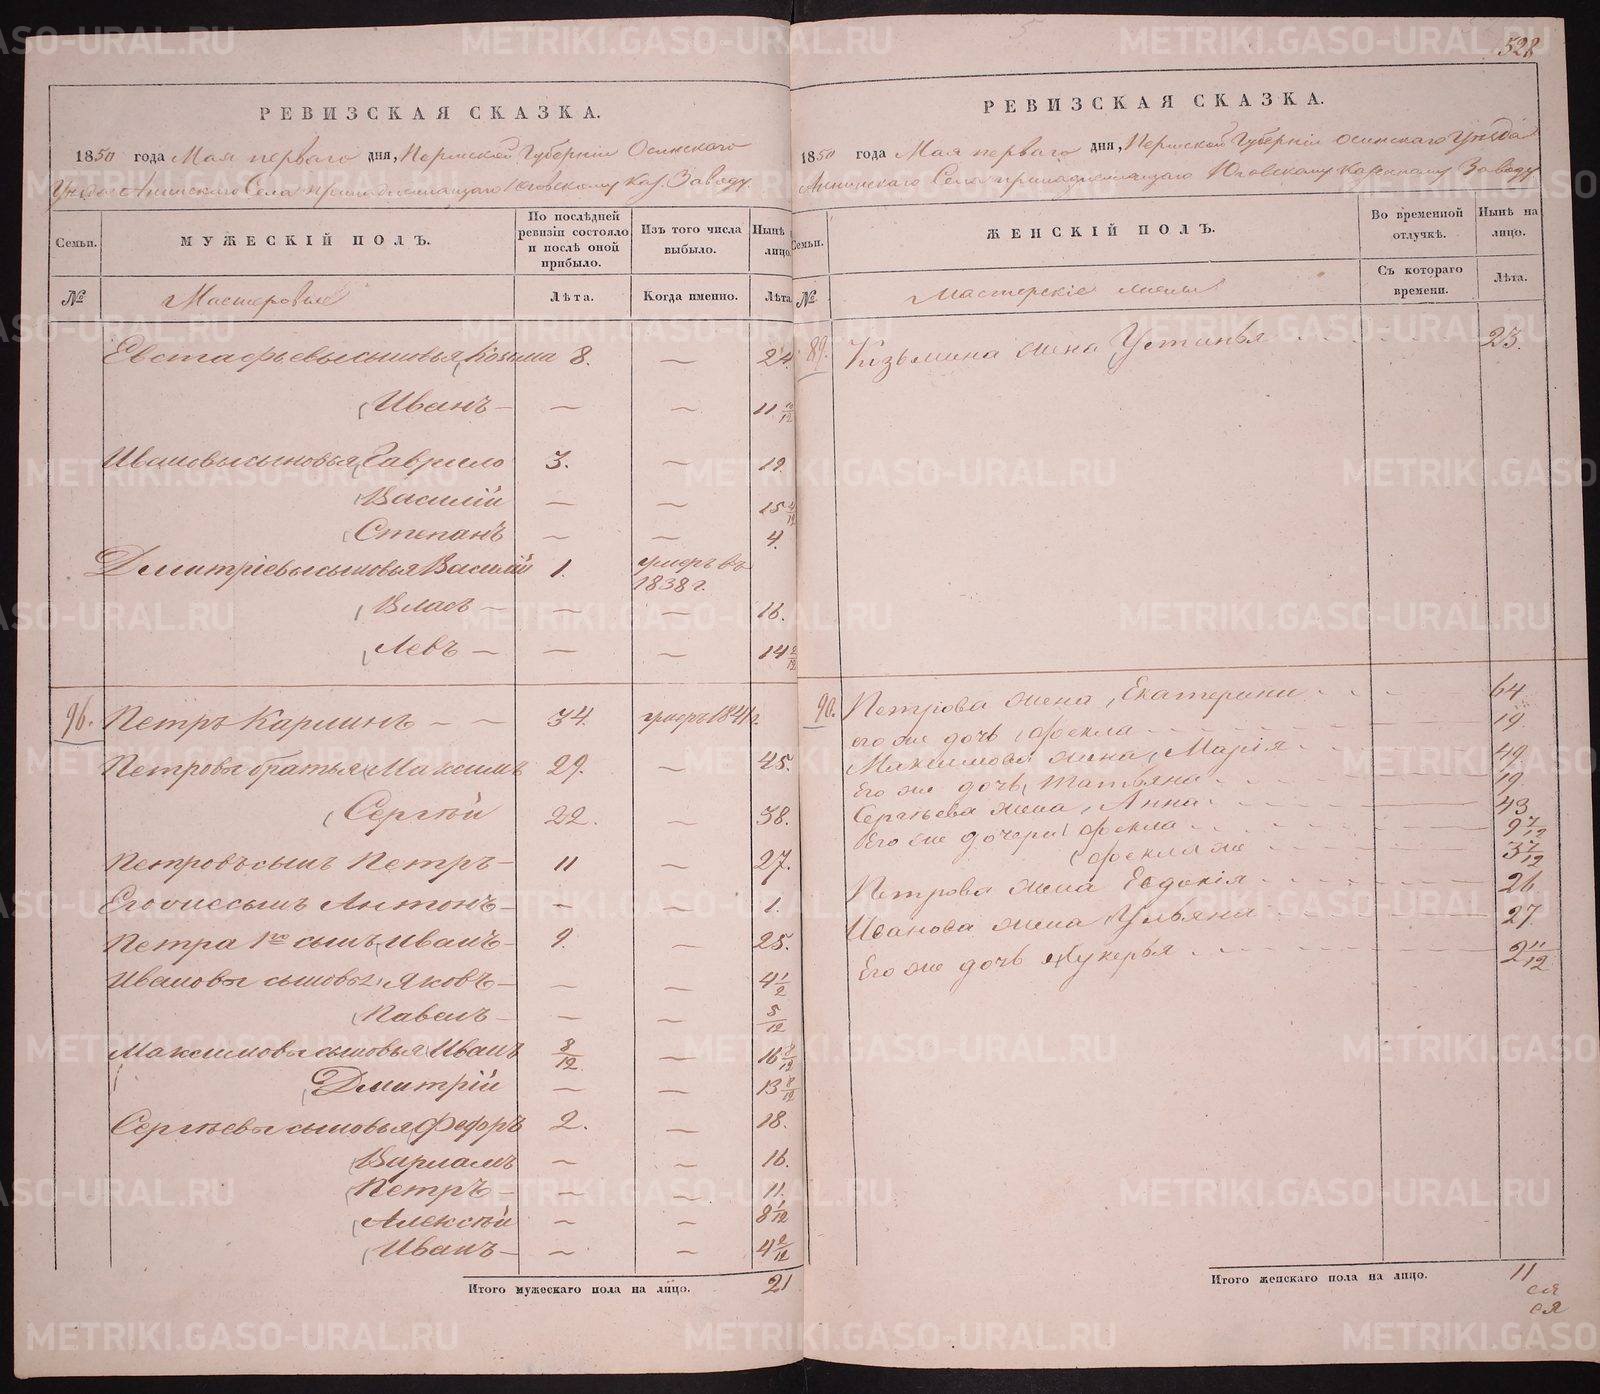 528
РЕВИЗСКАЯ СКАЗКА.
1850 года Мая перваго дня, Пермской Губерніи Осинскаго
Уѣзда Аннинскаго Села принадлежащаго Юговскому Каз. Заводу.
Семьи.
МУЖЕСКІЙ ПОЛЪ.
По послѣдней ревизіи состояло и послѣ оной прибыло.
Изъ того числа выбыло.
Нынѣ на лицо.
№
Мастеровые
Лѣта.
Когда именно.
Лѣта
Евстафьевы сыновья, Козьма 8. — 24.
Иванъ — — — 11 10/12
Ивановы сыновья, Гаврило 3. — 19.
Василій — — 15 4/12
Степанъ — — 4.
Дмитріевы сыновья Василій 1. умеръ въ 1838 г.
Власъ — — — 16.
Левъ — — — 14 2/12
96. Петръ Карминъ — — 34. умеръ 1841 г.
Петровы братья, Максимъ 29. — 45.
Сергѣй 22. — 38.
Петровъ сынъ Петръ — 11 — 27.
Его же сынъ Антонъ — — — 1.
Петра 1го сынъ, Иванъ — 9. — 25.
Ивановы сыновья, Яковъ — — — 4 1/2
Павелъ — — — 5/12
Максимовы сыновья, Иванъ 8/12 — 16 8/12
Дмитрій — — 13 8/12
Сергѣевы сыновья, Федоръ 2. — 18.
Варламъ — — 16.
Петръ — — — 11.
Алексѣй — — 8 1/12
Иванъ — — — 4 2/12
Итого мужескаго пола на лицо. 21
РЕВИЗСКАЯ СКАЗКА.
1850 года Мая перваго дня, Пермской Губерніи Осинскаго Уѣзда
Аннинскаго Села принадлежащаго Юговскому Казенному Заводу
Семьи.
ЖЕНСКІЙ ПОЛЪ.
Во временной отлучкѣ.
Нынѣ на лицо.
№
Мастерскіе жены
Съ котораго времени.
Лѣта.
89. Кузьмина жена Устинья 23.
90. Петрова жена, Екатерина 64.
его же дочь, Фекла 19
Максимова жена, Марія 49.
Его же дочь, Татьяна 19.
Сергѣева жена, Анна 43
Его же дочери, Фекла 9 7/12
Фекла же 3 7/12
Петрова жена Евдокія 26.
Иванова жена Ульяна 27.
Его же дочь Лукерья 2 11/12
Итого женскаго пола на лицо. 11
METRIKI.GASO-URAL.RU